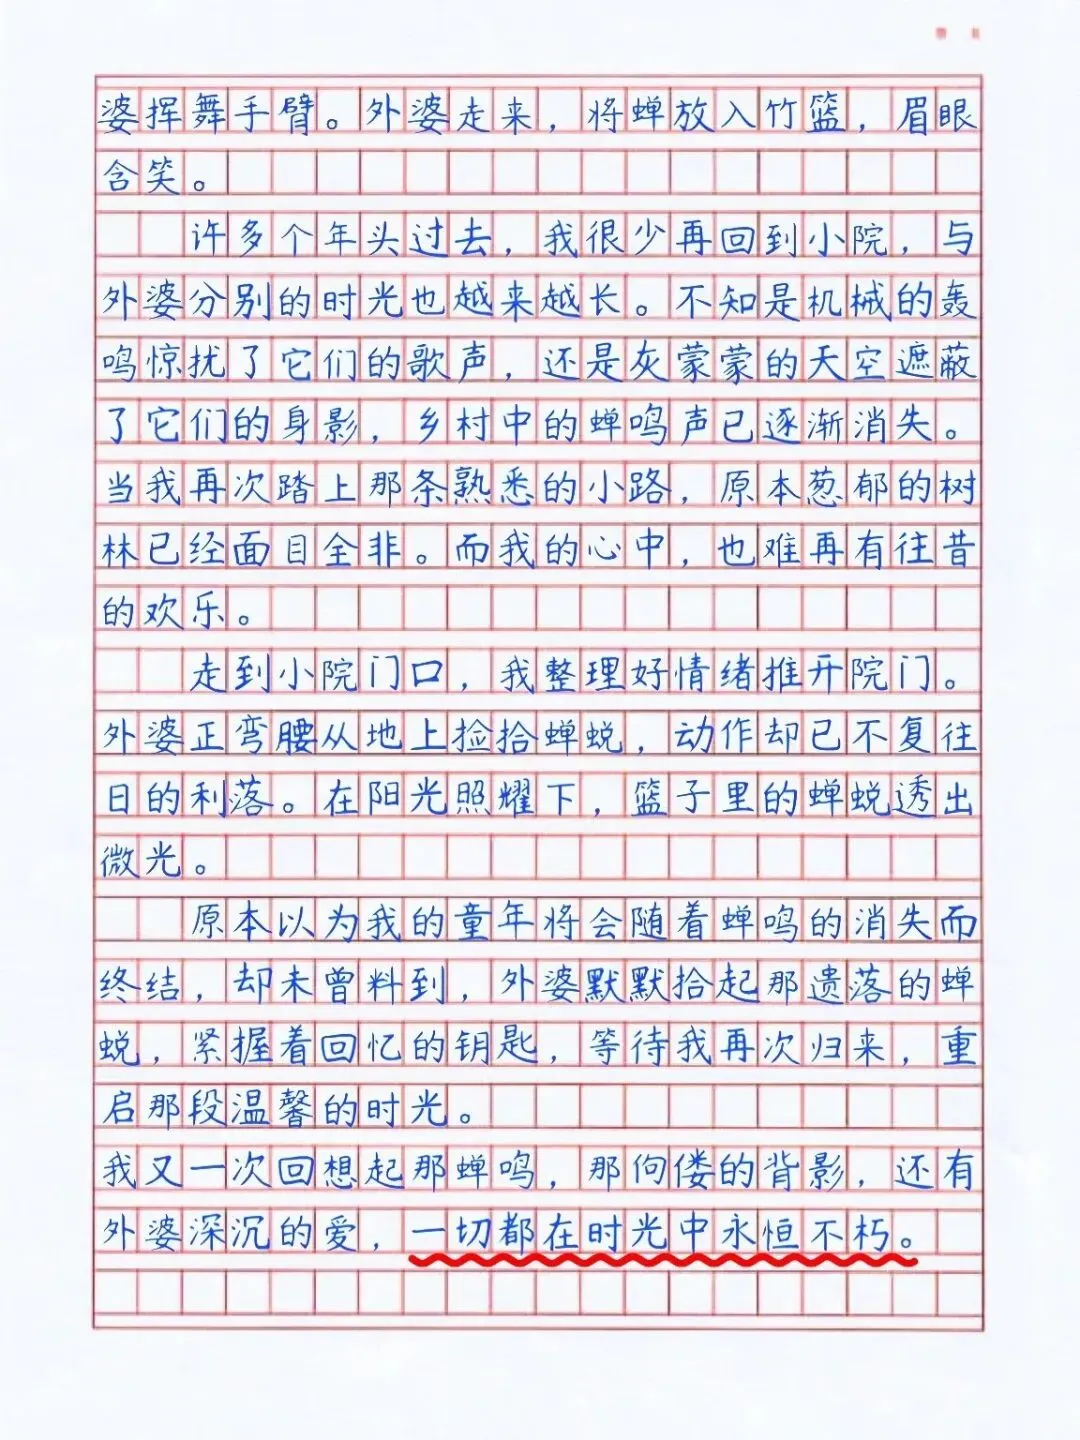 婆挥舞手臂。外婆走来，将蝉放入竹篮，眉眼
含笑。
许多个年头过去，我很少再回到小院，与
外婆分别的时光也越来越长。不知是机械的轰
鸣惊扰了它们的歌声，还是灰蒙蒙的天空遮蔽
了它们的身影，乡村中的蝉鸣声已逐渐消失。
当我再次踏上那条熟悉的小路，原本葱郁的树
林已经面目全非。而我的心中，也难再有往昔
的欢乐。
走到小院门口，我整理好情绪推开院门。
外婆正弯腰从地上捡拾蝉蜕，动作却已不复往
日的利落。在阳光照耀下，篮子里的蝉蜕透出
微光。
原本以为我的童年将会随着蝉鸣的消失而
终结，却未曾料到，外婆默默拾起那遗落的蝉
蜕，紧握着回忆的钥匙，等待我再次归来，重
启那段温馨的时光。
我又一次回想起那蝉鸣，那佝偻的背影，还有
外婆深沉的爱，一切都在时光中永恒不朽。